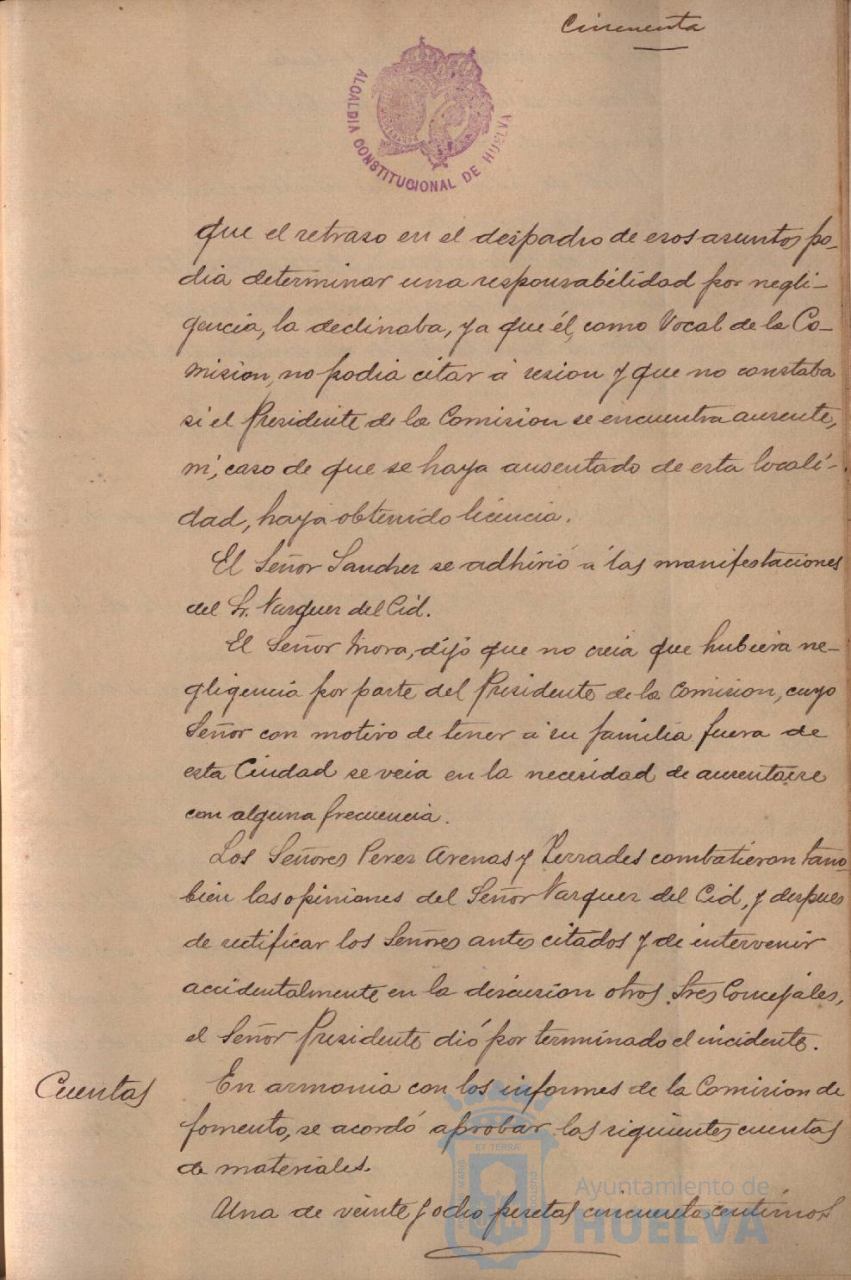 Cincuenta
ALCALDIA CONSTITUCIONAL DE HUELVA
que el retraso en el despacho de esos asuntos po-
dia determinar una responsabilidad por negli-
gencia, la declinaba, ya que él, como Vocal de la Co-
mision, no podia citar á sesion y que no constaba
si el Presidente de la Comision se encuentra ausente,
ni, caso de que se haya ausentado de esta locali-
dad, haya obtenido licencia.
El Señor Sanchez se adhirió á las manifestaciones
del Sr. Vazquez del Cid.
El Señor Mora, dijo que no creia que hubiera ne-
gligencia por parte del Presidente de la Comision, cuyo
Señor con motivo de tener á su familia fuera de
esta Ciudad se veia en la necesidad de ausentarse
con alguna frecuencia.
Los Señores Perez Arenas y Terrades combatieron tam-
bien las opiniones del Señor Vazquez del Cid, y despues
de rectificar los Señores antes citados y de intervenir
accidentalmente en la discusion otros Sres Concejales,
el Señor Presidente dió por terminado el incidente.
Cuentas
En armonia con los informes de la Comision de
fomento, se acordó aprobar las siguientes cuentas
de materiales.
Una de veinte y ocho pesetas cincuenta centimos
Ayuntamiento de
HUELVA